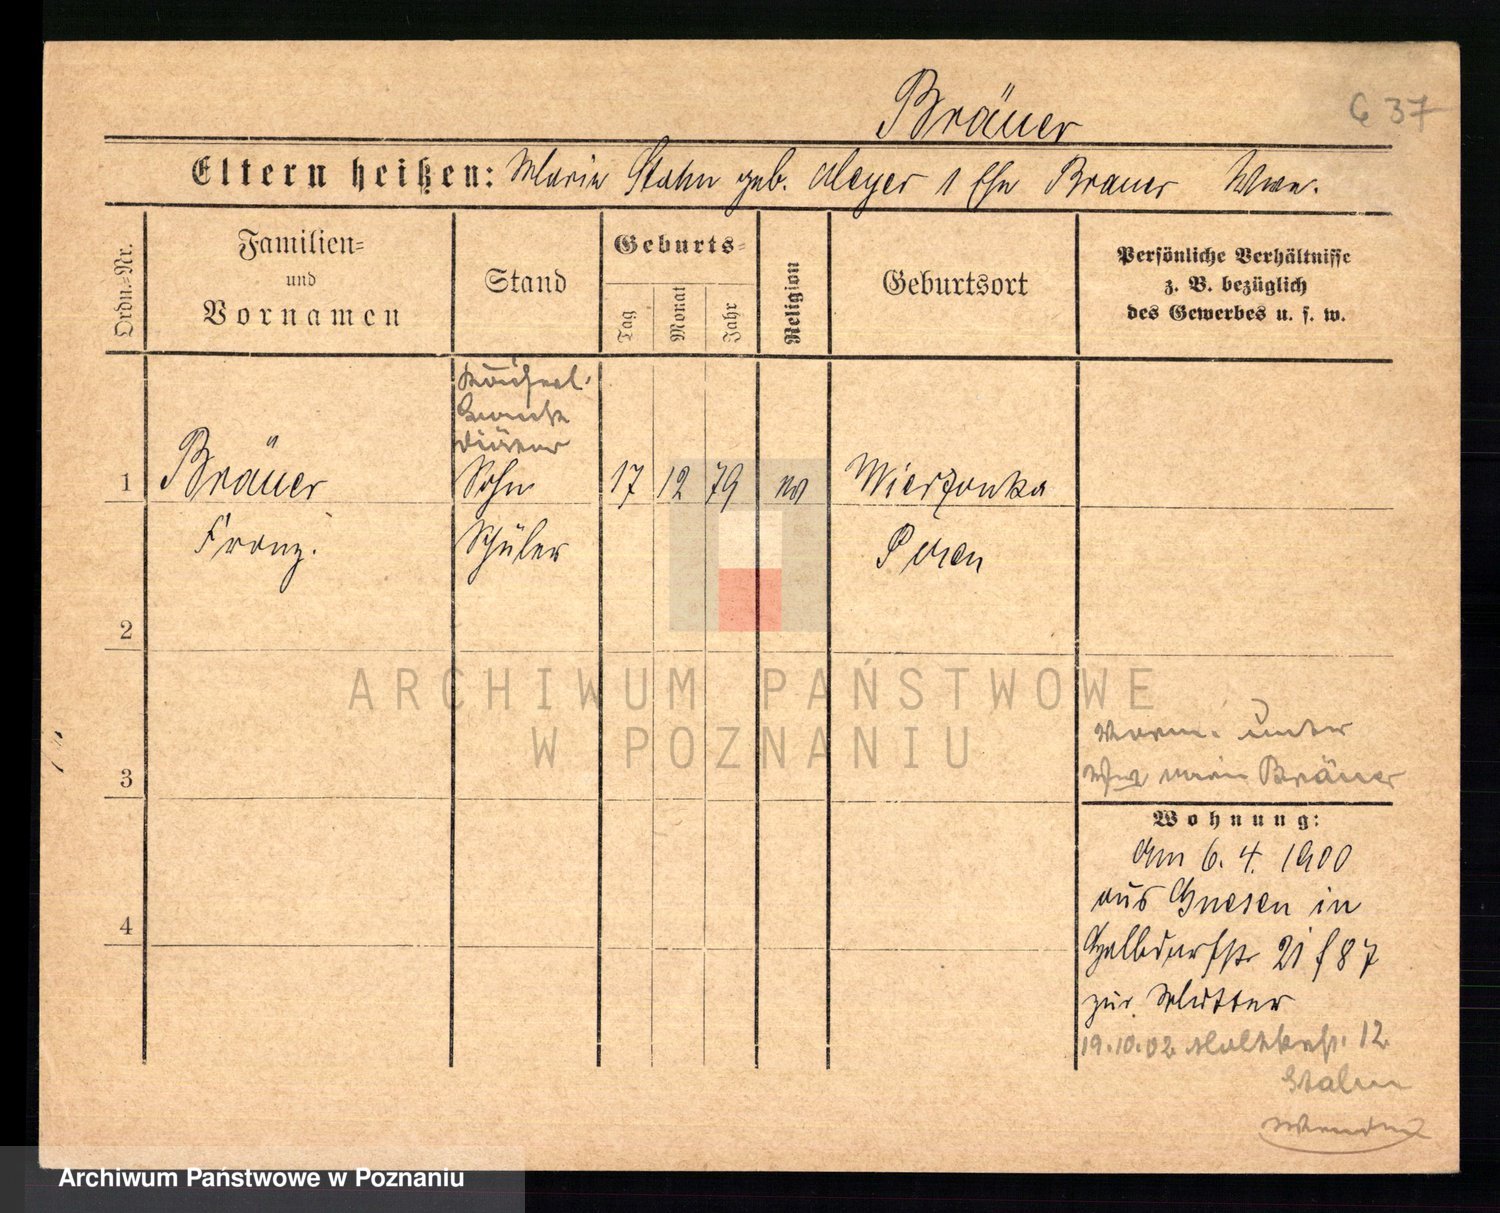 Bräuer
G 37
Eltern heißen: Marie Stahn geb. Meyer 1 Ehe Brauer Wwe.
Ordn.-Nr.
Familien-
und
Vornamen
Stand
Geburts-
Tag
Monat
Jahr
Religion
Geburtsort
Persönliche Verhältnisse
z. B. bezüglich
des Gewerbes u. s. w.
1 Bräuer Sohn 17 12 79 ev Wierzonka
Franz. Schüler Posen
2
3
4
unter
Bräuer
Wohnung:
Am 6. 4. 1900
aus Gnesen in
21 f 87
zur Mutter
19.10.02 Moltkestr. 12
Stahn
Wenden
ARCHIWUM PAŃSTWOWE
W POZNANIU
Archiwum Państwowe w Poznaniu